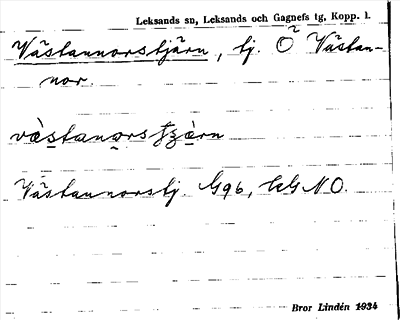 Leksands sn, Leksands och Gagnefs tg, Kopp. l.
Västannorstjärn, tj. Ö Västan-
nor.
vàstanors tjæ̀rn
Västannorstj. G96, EG NO.
Bror Lindén 1934